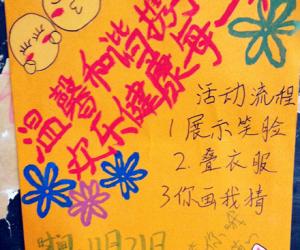 温馨和谐携
欢乐健康每一
活动流程
1展示笑脸
2.叠衣服
3你画我猜
11月21日